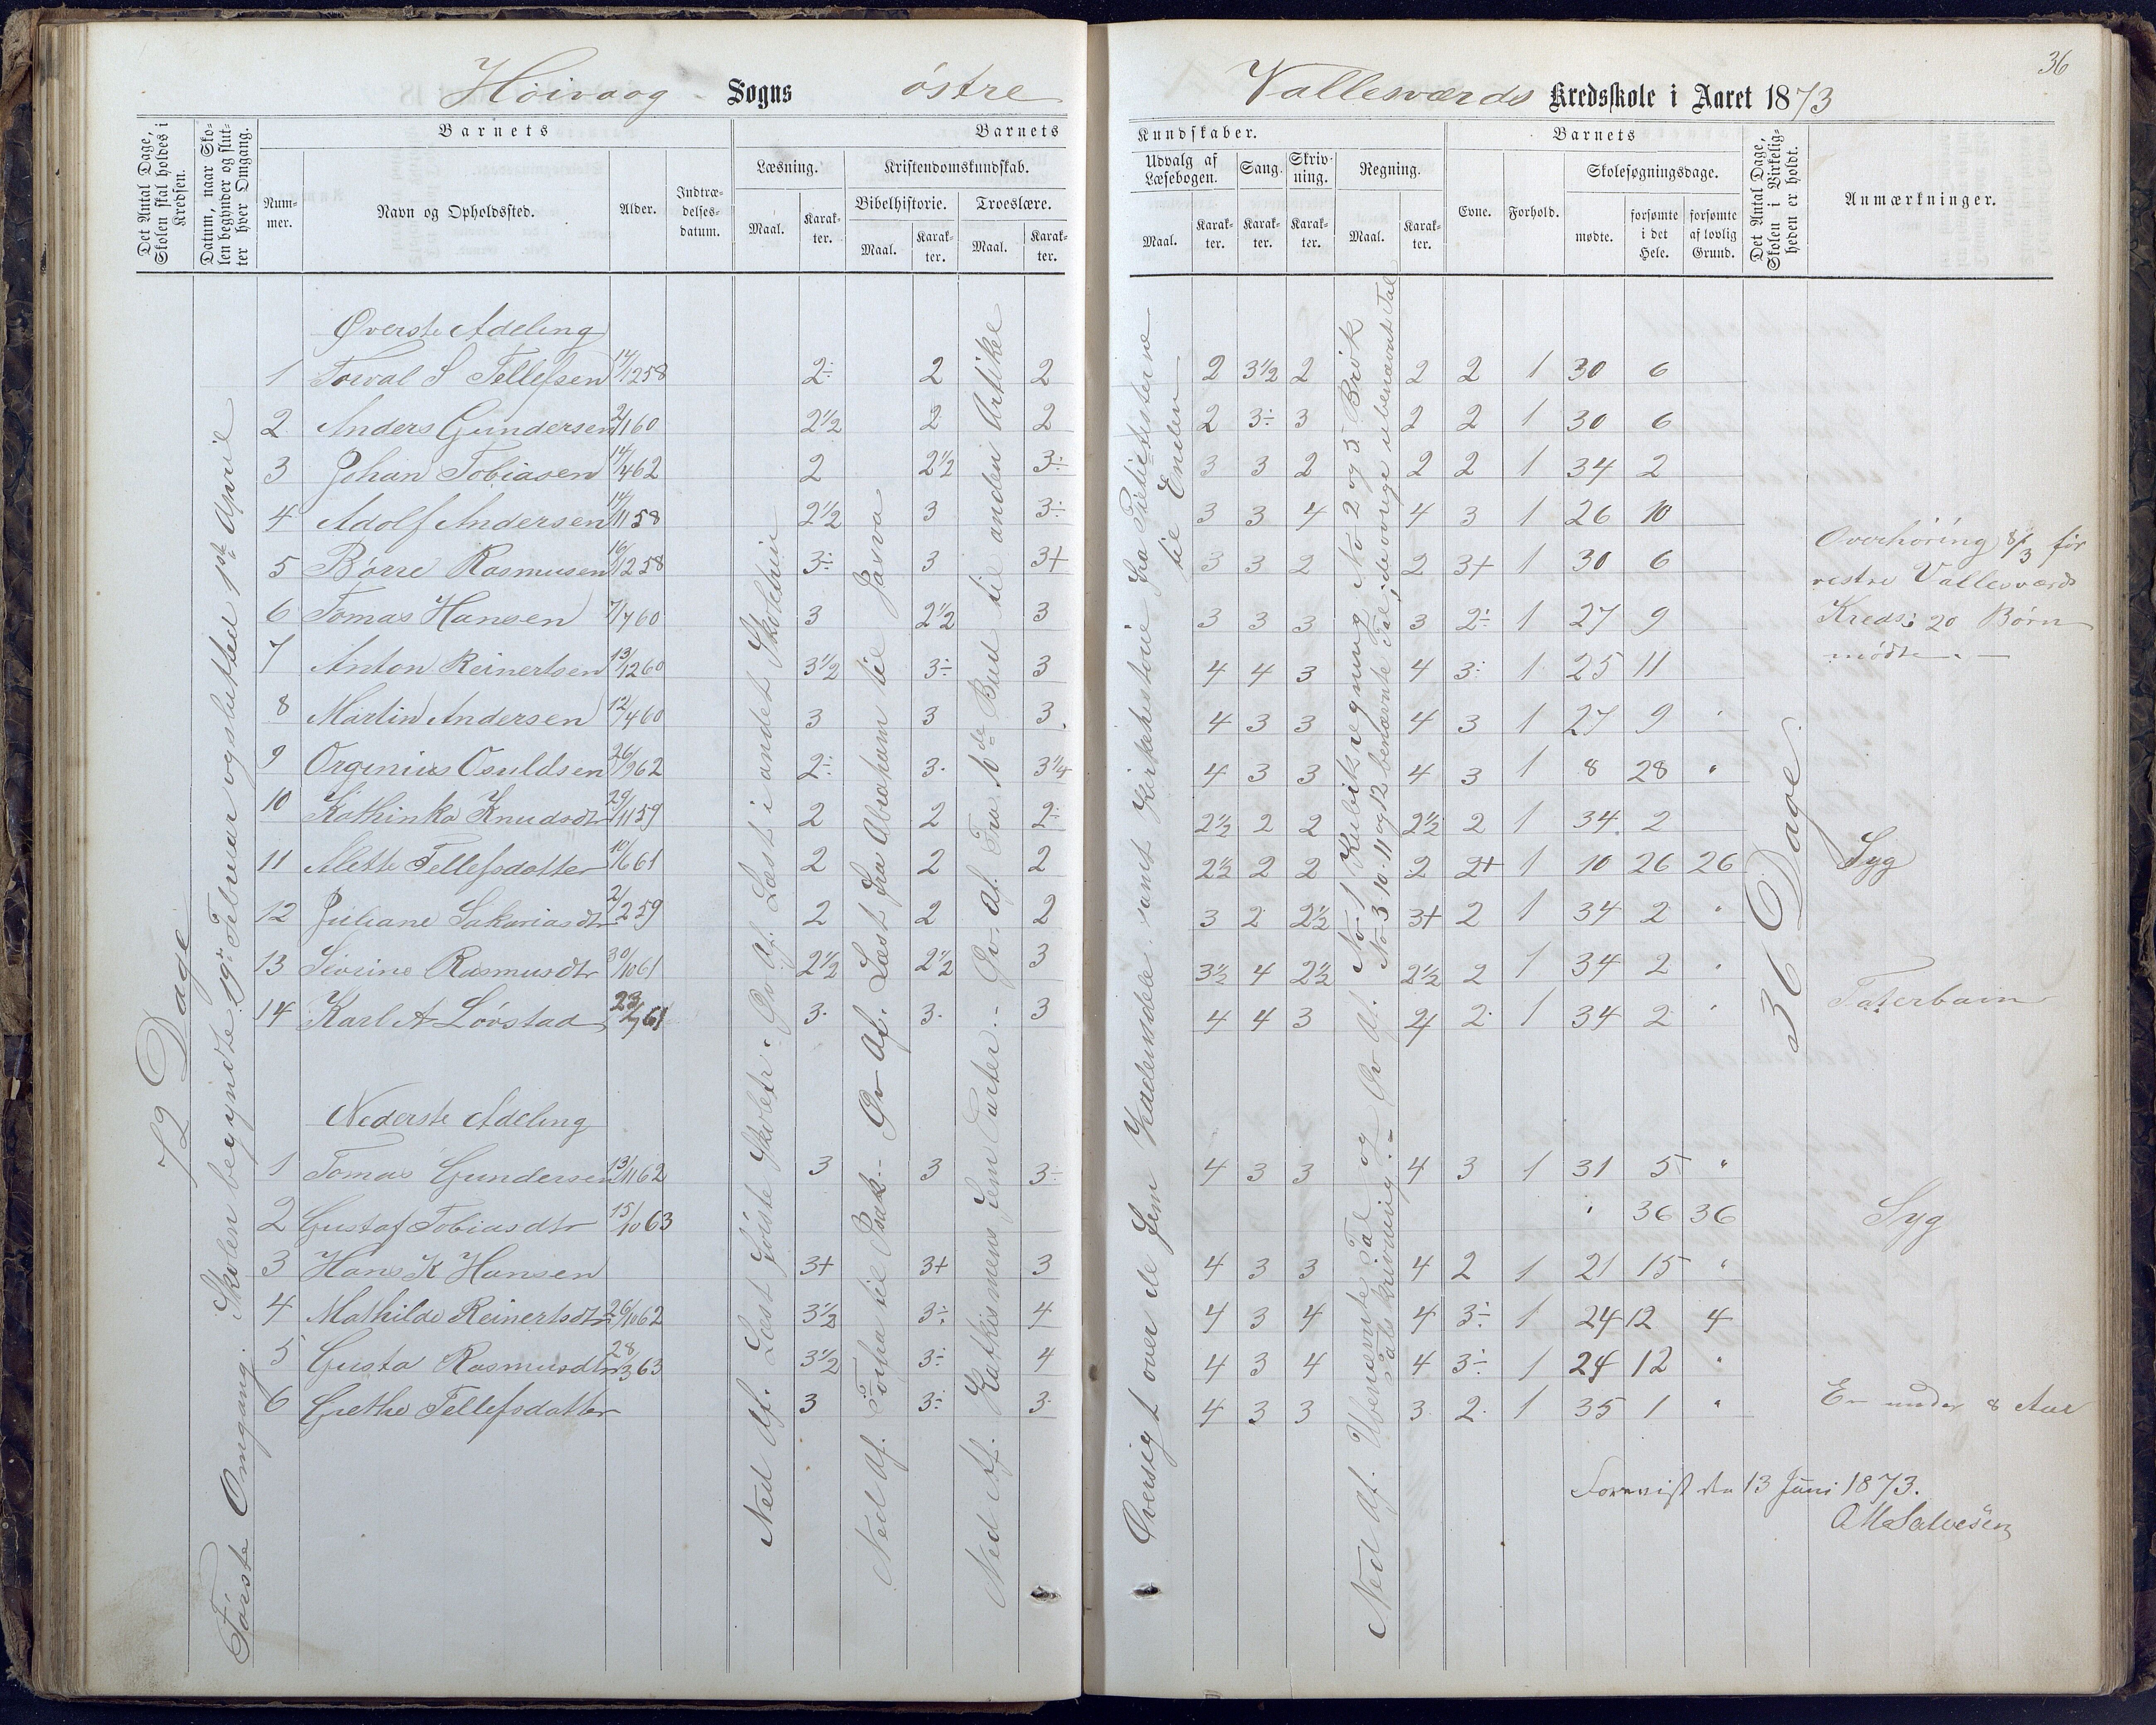 36
Höivaag Sogns östre Vallesværds Kredsskole i Aaret 1873
Det Antal Dage, Skolen skal holdes i Kredsen.
Datum, naar Skolen begynder og slutter hver Omgang.
Barnets
Nummer.
Navn og Opholdssted.
Alder.
Indtrædelsesdatum.
Barnets
Læsning.
Maal.
Karakter.
Kristendomskundskab.
Bibelhistorie.
Maal.
Karakter.
Troeslære.
Maal.
Karakter.
Kundskaber.
Udvalg af Læsebogen.
Maal.
Karakter.
Sang.
Karakter.
Skrivning.
Karakter.
Regning.
Maal.
Karakter.
Barnets
Evne.
Forhold.
Skolesøgningsdage.
mødte.
forsømte i det Hele.
forsømte af lovlig Grund.
Det Antal Dage, Skolen i Virkeligheden er holdt.
Anmærkninger.
72 Dage
Første Omgang. Skolen begyndte 19de Februar og slutted 1ste April
Øverste Adeling
1 Torval S Tellefsen 14/12 58 2÷ 2 2 2 3½ 2 2 2 1 30 6
2 Anders Gundersen 2/1 60 2½ 2 2 2 3÷ 3 2 2 1 30 6
3 Johan Tobiasen 14/4 62 2 2½ 3÷ 3 3 2 2 2 1 34 2
4 Adolf Andersen 14/11 58 2½ 3 3÷ 3 3 4 4 3 1 26 10
5 Börre Rasmusen 16/12 58 3÷ 3 3+ 3 3 2 2 3+ 1 30 6
6 Tomas Hansen 7/7 60 3 2½ 3 3 3 3 3 2÷ 1 27 9
7 Anton Reinertsen 13/12 60 3½ 3÷ 3 4 4 3 4 3÷ 1 25 11
8 Martin Andersen 12/4 60 3 3 3 4 3 3 4 3 1 27 9
9 Orginius Osuldsen 26/9 62 2÷ 3 3¼ 4 3 3 4 3 1 8 28 "
10 Kathinka Knudsdtr 29/11 59 2 2 2÷ 2½ 2 2 2½ 2 1 34 2
11 Alette Tellefsdatter 10/6 61 2 2 2 2½ 2 2 2 2+ 1 10 26 26 Syg
12 Juliane Sakariasdtr 2/2 59 2 2 2 3 2 2½ 3+ 2 1 34 2 "
13 Sivrine Rasmusdtr 30/10 61 2½ 2½ 3 3½ 4 2½ 2½ 2 1 34 2 "
14 Karl A Lövstad 23/7 61 3 3 3 4 4 3 4 2 1 34 2 " Taterbarn
Nederste Adeling
1 Tomas Gundersen 13/11 62 3 3 3÷ 4 3 3 4 3 1 31 5 "
2 Gustaf Tobiasdtr 15/10 63 36 36 Syg
3 Hans K Hansen 3+ 3+ 3 4 3 3 4 2 1 21 15 "
4 Mathilde Reinertsdtr 26/10 62 3½ 3÷ 4 4 3 4 4 3÷ 1 24 12 4
5 Gusta Rasmusdtr 28/3 63 3½ 3÷ 4 4 3 4 4 3÷ 1 24 12 "
6 Grethe Tellefsdatter 3 3÷ 3 4 3 3 3 2 1 35 1 " Er under 8 Aar
Ned Af. Læst förste Skoletr. Øv Af. Læst i andet Skoletrin
Ned Af. til Isak. Øv Af. Læst fra Abraham til Javva
Ned Af. Katkismens fem Parter. Øv. Af. Fra 10de Bud til anden Artikel
Oversigt over de fem samt Kirkehistorie fra Pietisterne
til Enden
Ned Af. Ubenævnte Tal og Talskrivning. Øv Af. No 1 Kubikregning No 2 og 5 Brök
No 3. 10. 11 og 12 benævnte Tal; de övrige ubenævnt Tal
36 Dage.
Overhöring 8/3 för
vestre Vallesværds
Kreds; 20 Børn
mödte.
Forevist den 13 Juni 1873.
OMSalvesen